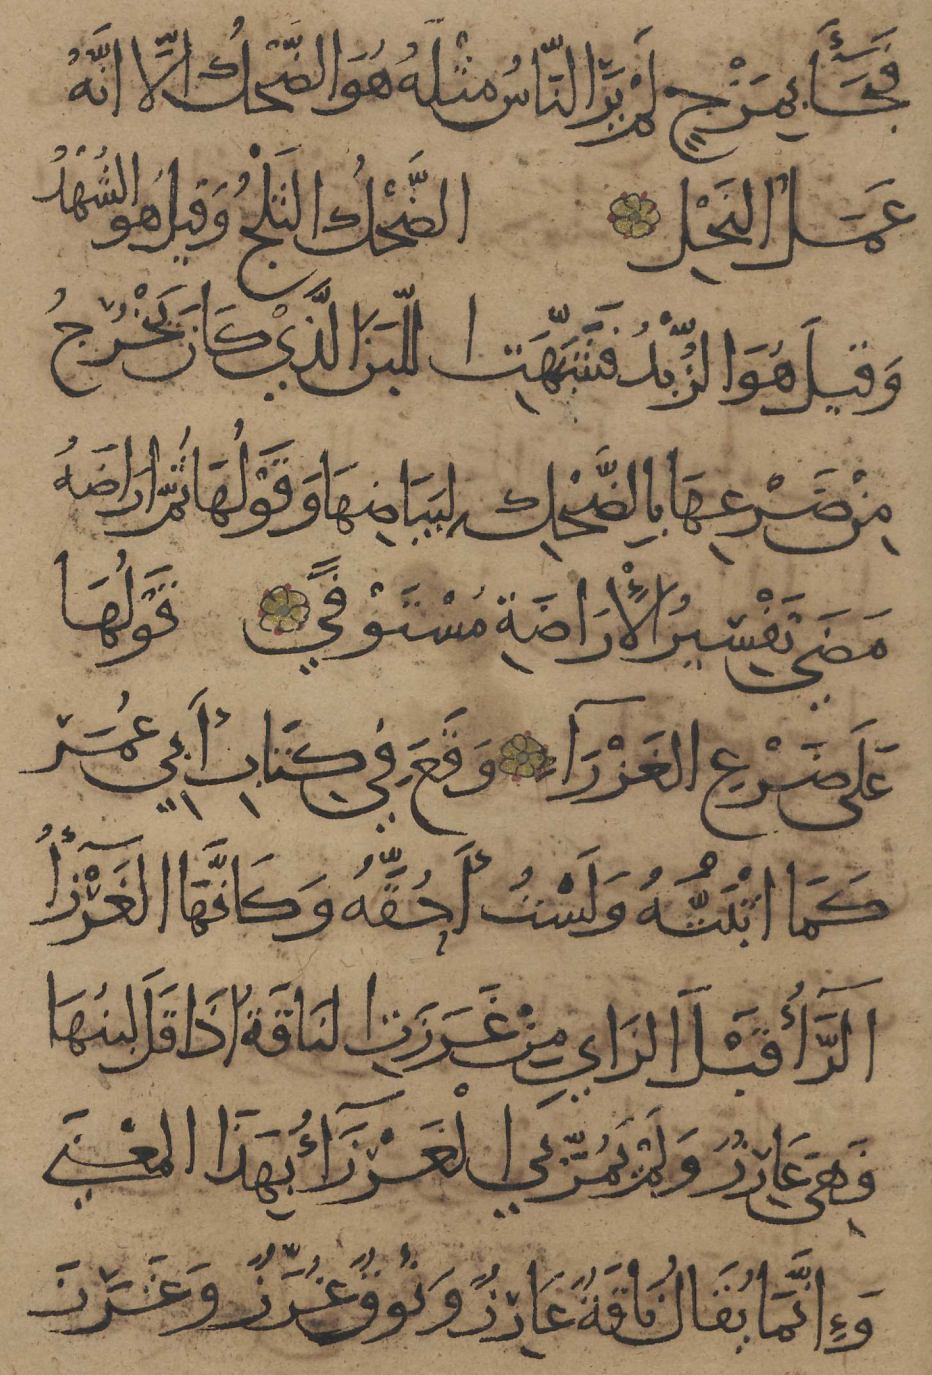 فَجَآءَ بِمَزْجٍ لَمْ يَرَ النَّاسُ مِثْلَهُ هُوَ الضَّحْكُ اِلَّا اَنَّهُ
عَمَلُ النَحْلِ الضَّحْكُ الثَلْجُ وَقِيلَ هُو الشُهْدُ
وَقيلَ هُوَ الزُّبْدُ فَشَبَّهَتِ اللَّبَنَ الَّذِي كَانَ يَخْرُجُ
مِنْ ضَرْعِهَا بِالضَّحْكِ لِبَيَاضِهَا وَقَوْلُهَا ثُمَّ اَرَاضَهُ
مَضَى تَفْسِيرُ الْأِرَاضَةِ مُسْتَوْفًى قَوْلُهَا
عَلَى ضَرْعِ الغَزْرَآءِ وَقَعَ في كِتَابِ أَبِي عُمَرَ
كَمَا اثْبَتُّهُ وَلَسْتُ أَحُقُّهُ وَكَانَّهَا الغَرْزَآءُ
الرَّآءُ قَبْلَ الزَايِ مِنْ غَرَزَتِ النَاقَةُ اذَا قَلَ لبنُهَا
فَهِيَ غَارِزٌ وَلَمْ يَمُرَّ بِي الْغَرْزَآءُ بِهَذَا المَعْنَى
وَإِنَّمَا يُقَالُ نَاقَةٌ غَارِزٌ وَنُوقٌ غُرَّزٌ وَغَرَزَتْ